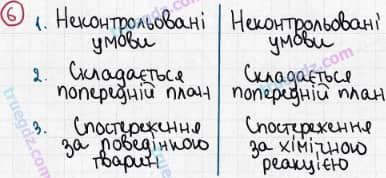 6
1. Неконтрольовані
умови
2. Складається
попередній план
3. Спостереження
за поведінкою
тварин
Неконтрольовані
умови
Складається
попередній план
Спостереження
за хімічною
реакцією